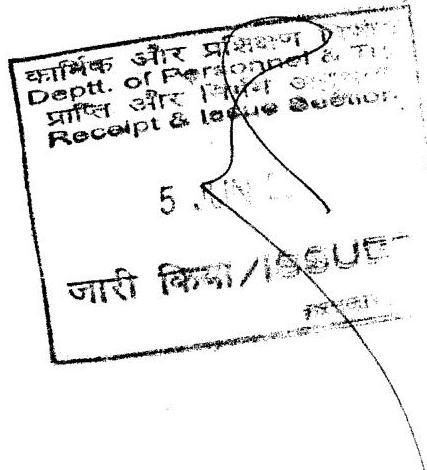 कार्मिक और प्रशिक्षण
Deptt. of Personnel &
प्राप्ति और
Receipt & Issue Section
5 JUN
जारी किया/ISSUED